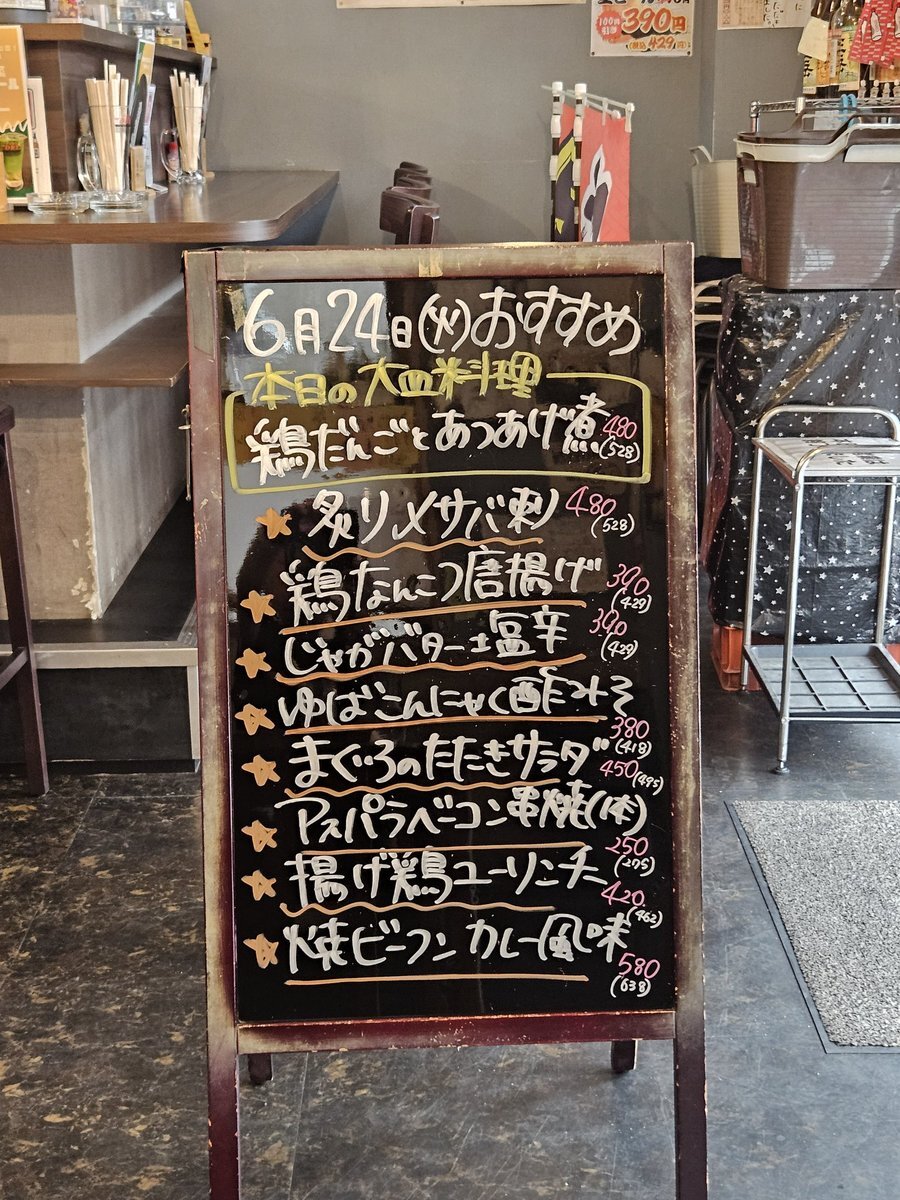 100円引き
390円
(税込429円)
6月24日(火)おすすめ
本日の大皿料理
鶏だんごとあつあげ煮 480
(528)
炙りメサバ刺 480
(528)
鶏なんこつ唐揚げ 390
(429)
じゃがバター塩辛 390
(429)
ゆばこんにゃく酢みそ
380
(418)
まぐろのたたきサラダ 450(495)
アスパラベーコン串焼(1本)
250
(275)
揚げ鶏ユーリンチー
420
(462)
焼ビーフンカレー風味
580
(638)